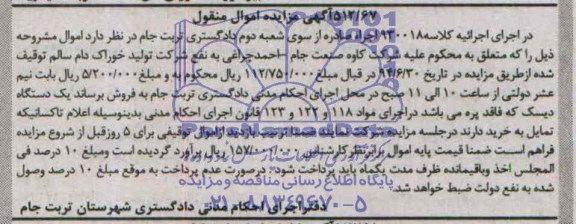 ۵۱۲/۶۷ آگهی مزایده اموال منقول
در اجرای اجرائیه کلاسه ۹۳۰۰۱۸ اجراء صادره از سوی شعبه دوم دادگستری تربت جام در نظر دارد اموال مشروحه
ذیل را که متعلق به محکوم علیه شرکت کاوه صنعت جام -احمدچراغی به نفع شرکت تولید خوراک دام سالم توقیف
شده ازطریق مزایده در تاریخ ۹۴/۶/۳۰ در قبال مبلغ ۱۱۲/۷۵۰/۰۰۰ ریال محکوم به و مبلغ ۵/۲۰۰/۰۰۰ ریال بابت نیم
عشر دولتی از ساعت ۱۰ الی ۱۱ صبح در محل اجرای احکام مدنی دادگستری تربت جام به فروش برساند یک دستگاه
دیسک که فاقد پره می باشد دراجرای مواد ۱۱۸ و ۱۲۲ و ۱۲۳ قانون اجرای احکام مدنی بدینوسیله اعلام تاکسانیکه
تمایل به خرید دارند درجلسه مزایده شرکت نمایند ضمنا ترتیب بازدید از اموال توقیفی برای ۵ روزقبل از شروع مزایده
فراهم است ضمنا قیمت پایه اموال برابرنظرکارشناس ریال برآورد گردیده است ومبلغ ۱۰ درصد فی
المجلس اخذ وباقیمانده ظرف مدت یکماه باید پرداخت شود. درصورت عدم پرداخت به موقع مبلغ ۱۰ درصد وصول
شده به نفع دولت ضبط خواهد شد.
دفتراجرای احکام مدنی دادگستری شهرستان تربت جام
پایگاه اطلاع رسانی مناقصه و مزایده
۰۲۱-۸۸۳۴۹۶۷۰-۵